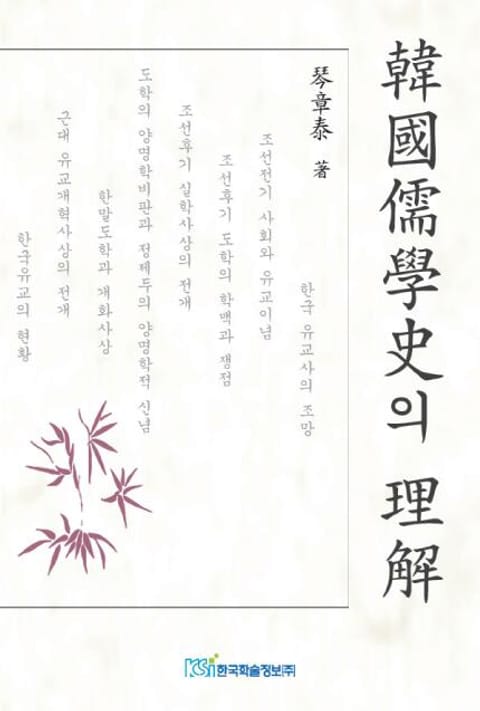 韓國儒學史의 理解
琴章泰 著
한국 유교사의 조망
조선전기 사회와 유교이념
조선후기 도학의 학맥과 쟁점
조선후기 실학사상의 전개
도학의 양명학비판과 정제두의 양명학적 신념
한말도학과 개화사상
근대 유교개혁사상의 전개
한국유교의 현황
KSi 한국학술정보(주)